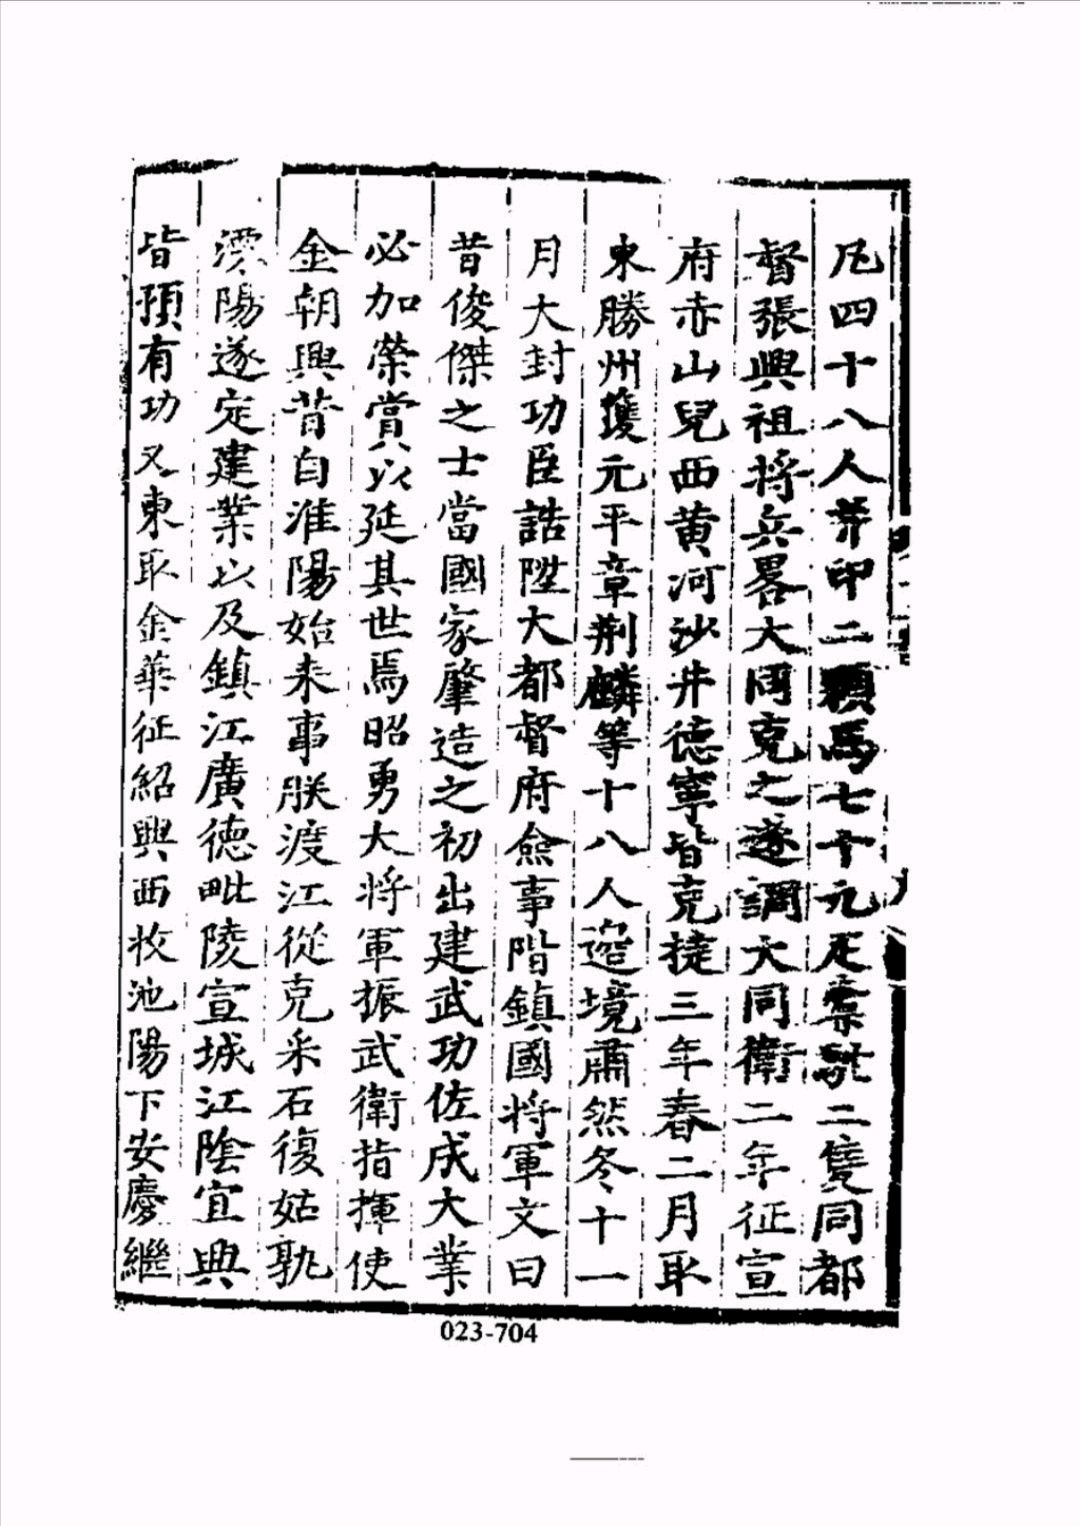 凡四十八人并印二顆馬七十九疋橐駞二隻同都
督張興祖將兵畧大同克之遂調大同衛二年征宣
府赤山兒西黄河沙井德寧皆克捷三年春二月取
東勝州獲元平章荆麟等十八人邉境肅然冬十一
月大封功臣誥陞大都督府僉事階鎮國將軍文曰
昔俊傑之士當國家肇造之初出建武功佐成大業
必加榮賞以延其世焉昭勇大將軍振武衛指揮使
金朝興昔自淮陽始来事朕渡江從克采石復姑孰
溧陽遂定建業以及鎮江廣德毗陵宣城江陰宜興
皆預有功又東取金華征紹興西收池陽下安慶繼
023-704